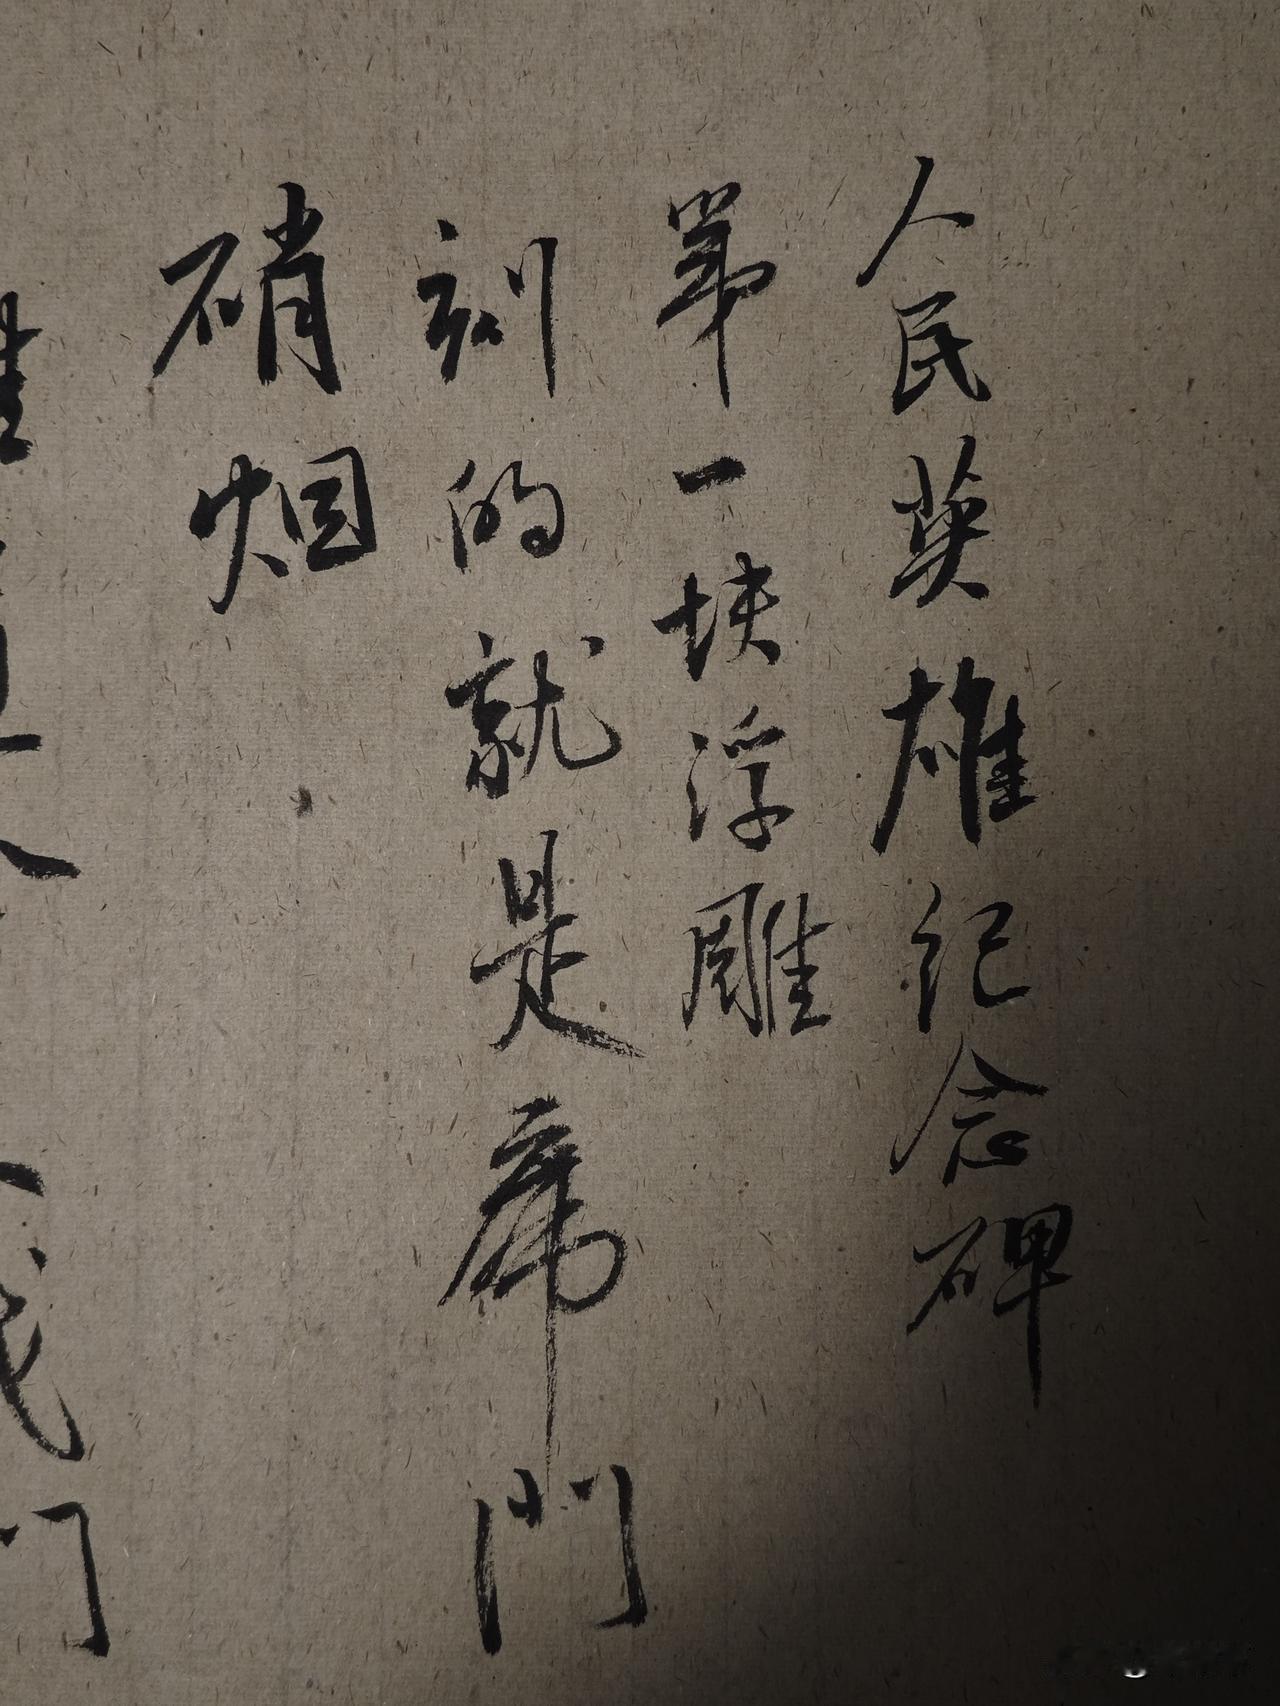 人民英雄纪念碑
第一块浮雕
刻的就是虎門
硝烟